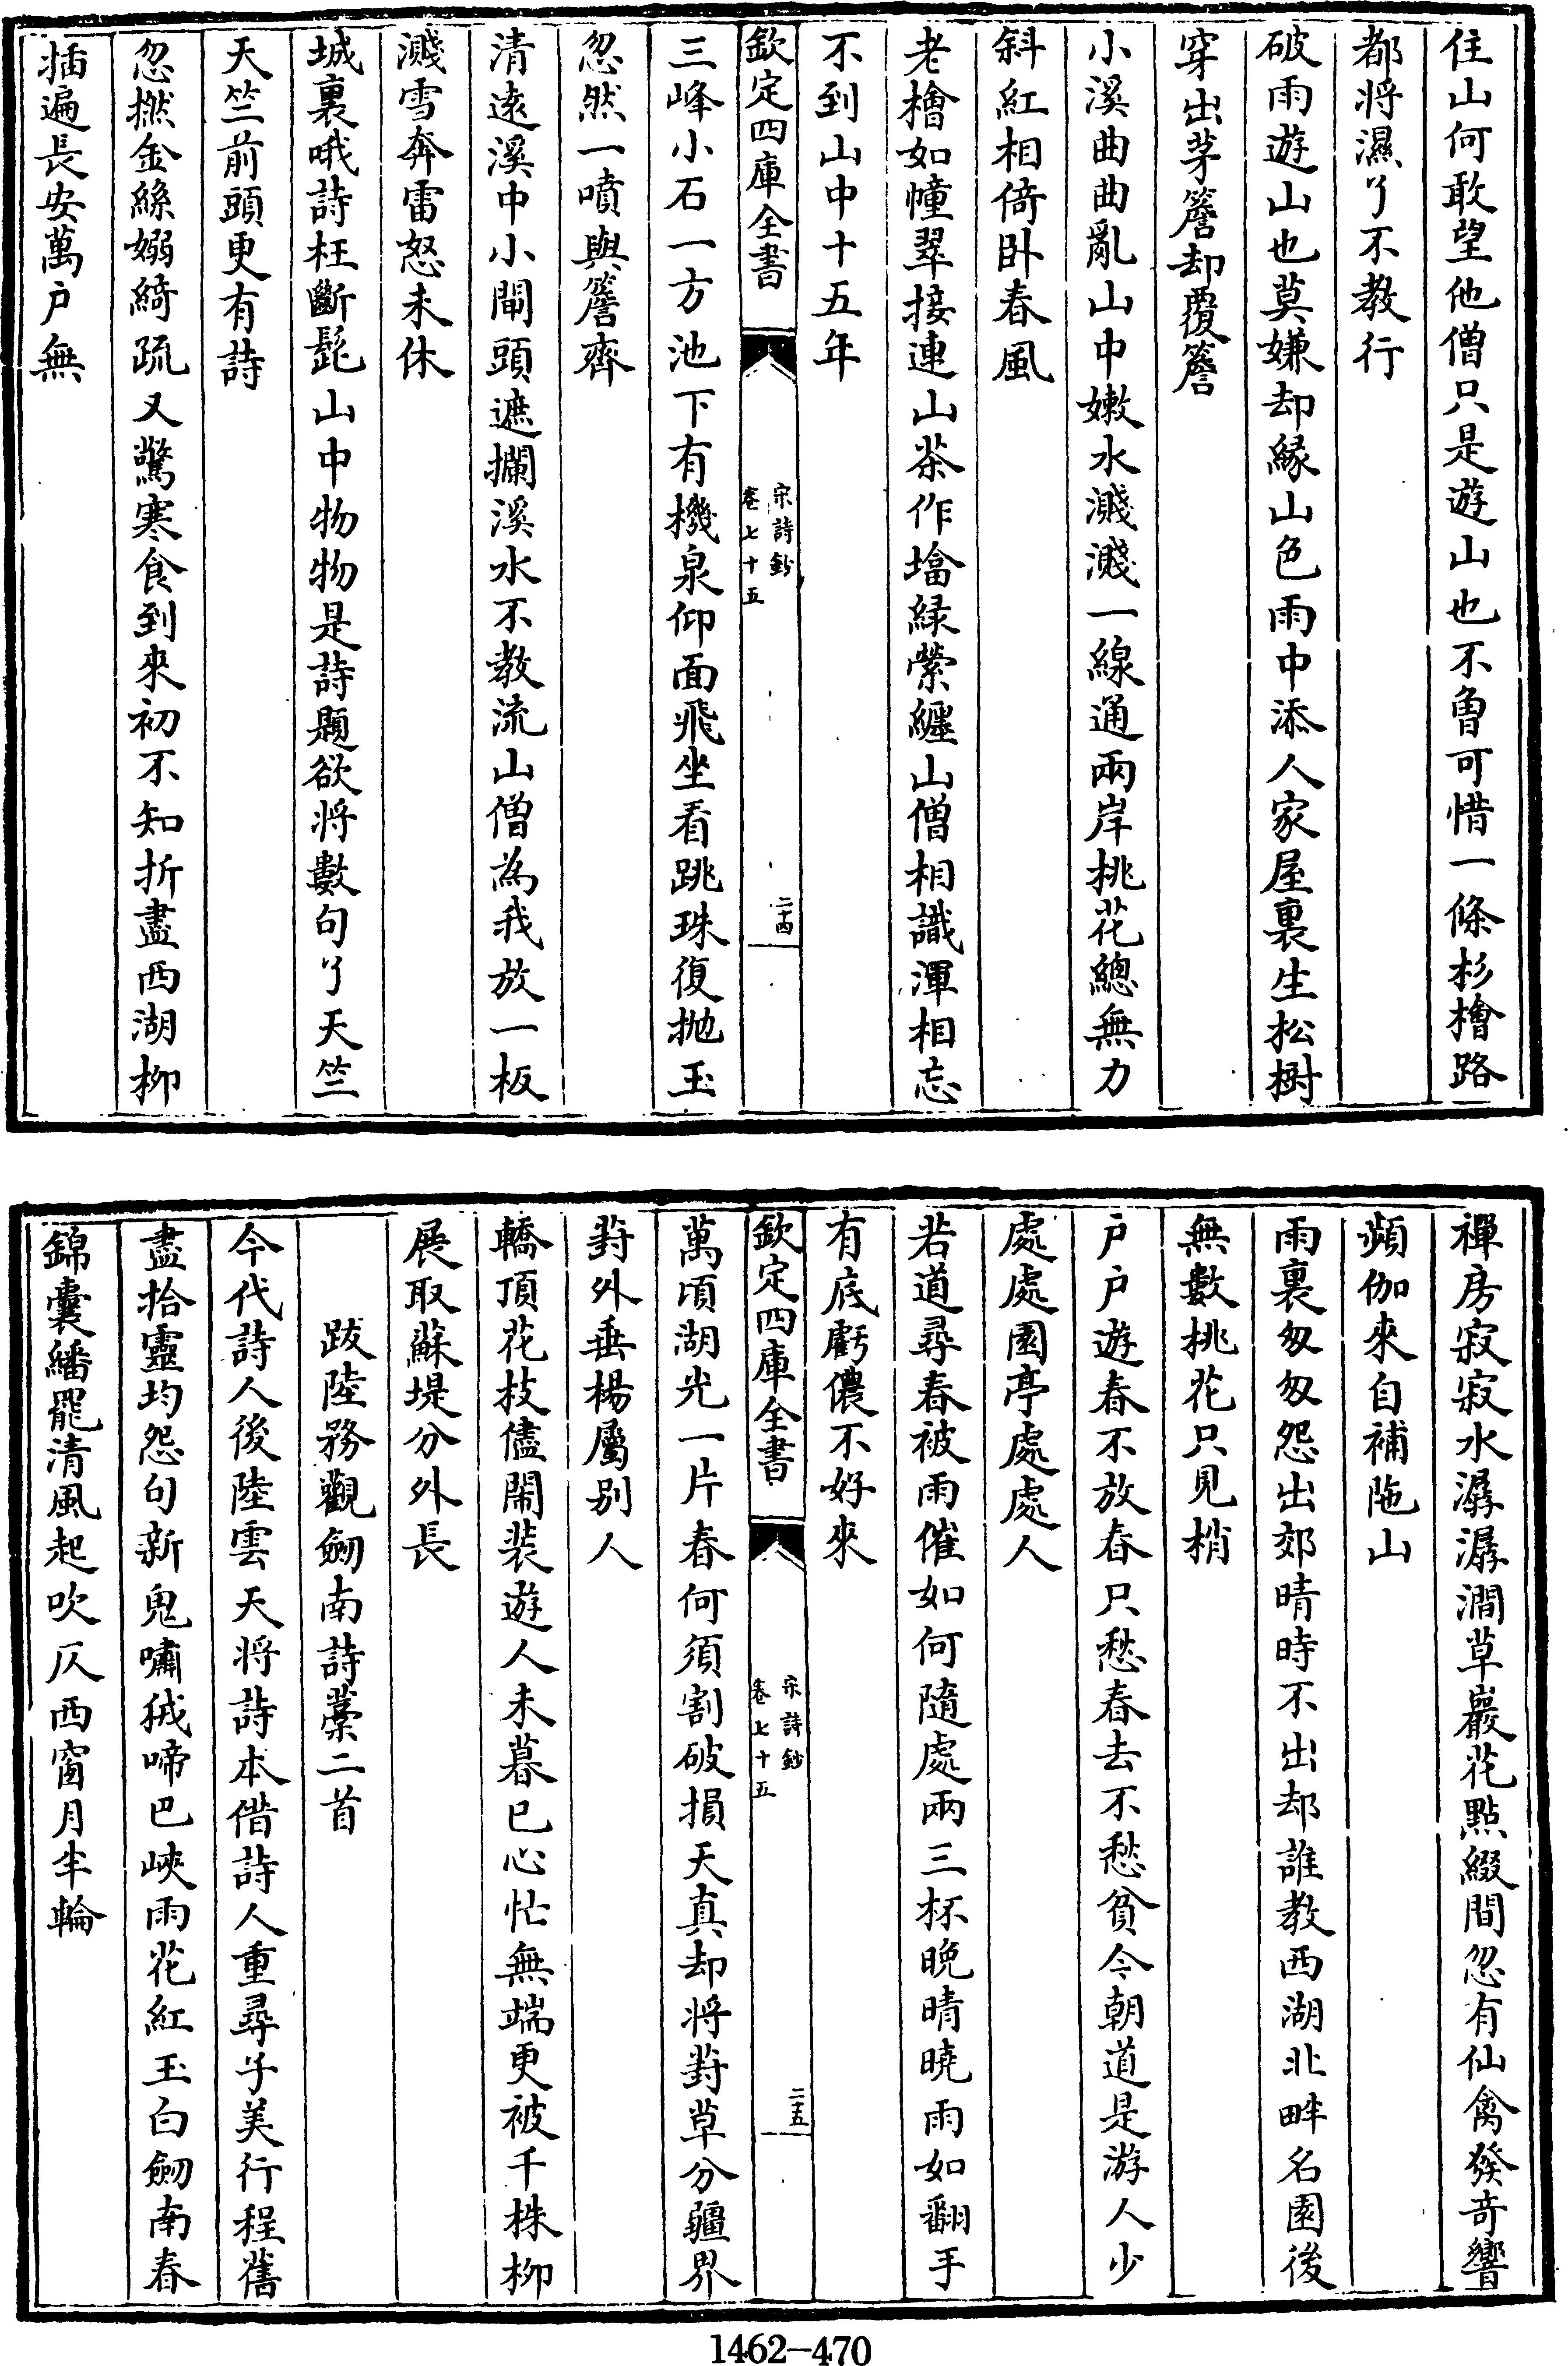 住山何敢望他僧只是遊山也不曽可惜一條杉檜路
都將濕了不教行
破雨遊山也莫嫌却緣山色雨中添人家屋裏生松樹
穿出茅簷却覆簷
小溪曲曲亂山中嫩水濺濺一線通兩岸桃花總無力
斜紅相倚卧春風
老檜如幢翠接連山茶作墖緑縈纏山僧相識渾相忘
不到山中十五年
欽定四庫全書
宋詩鈔
卷七十五
二十四
三峰小石一方池下有機泉仰面飛坐看跳珠復抛玉
忽然一噴與簷齊
清遠溪中小閘頭遮攔溪水不教流山僧為我放一板
濺雪奔雷怒未休
城裏哦詩枉斷髭山中物物是詩題欲將數句了天竺
天竺前頭更有詩
忽撚金絲嫋綺疏又驚寒食到來初不知折盡西湖柳
插遍長安萬户無
禪房寂寂水潺潺澗草巖花點綴間忽有仙禽發奇響
頻伽來自補陁山
雨裏匆匆怨出郊晴時不出却誰教西湖北畔名園後
無數桃花只見梢
户户遊春不放春只愁春去不愁貧今朝道是游人少
處處園亭處處人
若道尋春被雨催如何隨處兩三杯晩晴曉雨如翻手
有底虧儂不好來
欽定四庫全書
宋詩鈔
卷七十五
二十五
萬頃湖光一片春何須割破損天真却將葑草分疆界
葑外垂楊屬別人
轎頂花枝儘鬧裝遊人未暮已心忙無端更被千株柳
展取蘇堤分外長
跋陸務觀劒南詩藁二首
今代詩人後陸雲天將詩本借詩人重尋子美行程舊
盡拾靈均怨句新鬼嘯狨啼巴峽雨花紅玉白劒南春
錦囊繙罷清風起吹仄西窗月半輪
1462-470